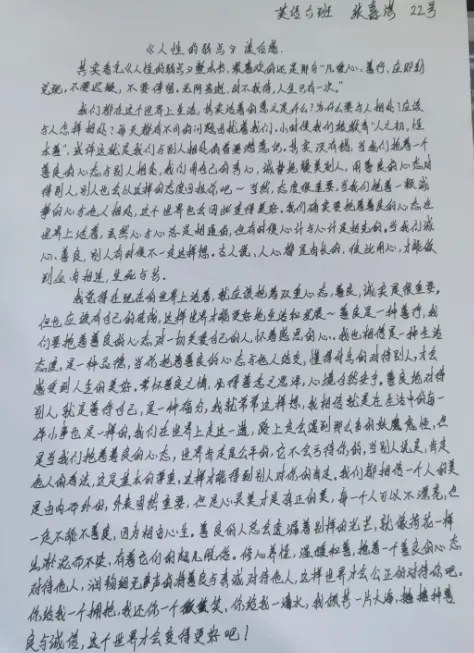 英语六班 张 22号
《人性的弱点》读后感
其实看完《人性的弱点》整本书,最喜欢的还是那句"凡爱心、善行,应即刻
兑现,不要迟疑,不要停留,无所容逝,时不我待,人生只有一次。"
我们都在这个世界上生活,其实活着的意义是什么?为什么要与人相处?应该
与人怎样相处?每天都有不同的问题困扰着我们。小时候我们被教育"人之初,性
本善",或许这就是我们与别人相处的首要潜意识。其实没有错,当我们抱着一个
善良的心态与别人相处,我们用自己的真心,诚挚地暖美别人,用善良的心态对
待别人,别人也会以这样的态度回报你吧~当然,态度很重要,当我们抱着一颗
的心与他人相处,这个世界也会因此变得更好。我们确实要抱着善良的心态在
世界上活着,虽然心与心总是相通的,但有时候心计与心计是相克的。当我们诚
心、善良,别人有时候不一定这样想。古人说,人心都是肉长的,彼此用心,才能做
到血肉相连,生死与共。
我觉得在现在的世界上活着,就应该抱着双重心态,善良,诚实是很重要。
但也应该有自己的底线,这样世界才能更好地生活和发展~善良是一种善行,我
们要抱着善良的心态对一切关爱自己的人,怀着感恩的心。我也相信是一种生活
态度,是一种品德,当你抱着善良的心态与他人结交,懂得对自的对待别人,才会
感受到人生的美好。常怀善良之情,必得善意之思活,心境自然安宁。善良地对待
别人,就是善待自己,是一种福力,我就常常这样想,我相信就是在生活中的每一
件小事也是一样的,我们在世界上走这一遭,路上定会遇到那么多的妖魔鬼怪,但
是当我们抱着善良的心态,世界肯定是公平的,它不会亏待你的,当别人说是,肯定
他人的看法,这是基本的尊重,这样才能得到别人对你的肯定。我们都相信一个人的美
是由内而外的,外表固然重要,但是心灵美才是真正的美,每一个人可以不漂亮,但
一定不能不善良,因为相由心生。善良的人总会透漏着别样的光芒,就像荷花一样
出淤泥而不染,有着它们的超凡脱俗。修心养性,温暖和善,抱着一个善良的心态
对待他人,润物细无声的将善良与真诚对待他人,这样世界才会公正的对待你吧。
你给我一个拥抱,我还你一个微笑,你给我一滴水,我保卷一片大海,播种善
良与诚信,这个世界才会变得更好吧!